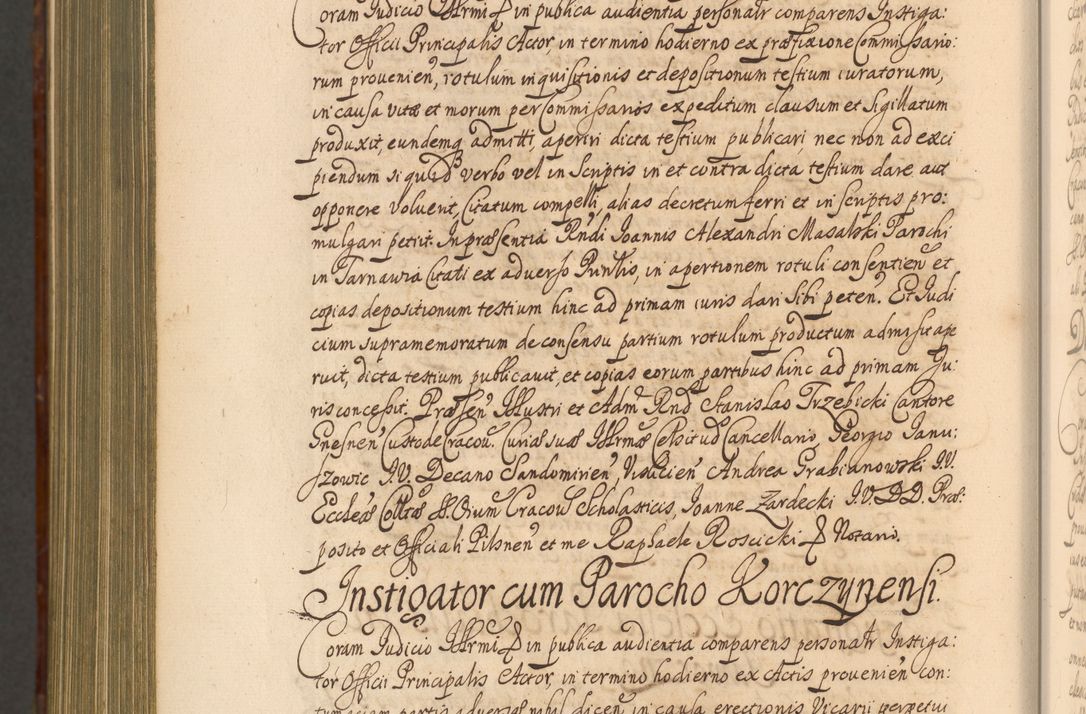 Coram Judicio Illrmi D in publica audientia personalr comparens Instiga:
tor Officii Principalis Actor, in termino hodierno ex præfixione Commissario:
rum provenien, rotulum inquisitionis et depositionum testium iuratorum,
in causa vitæ et morum per Commissarios expeditum clausum et sigillatum
produxit, eundemq admitti, aperiri dicta testium publicari nec non ad exci
piendum si quid verbo vel in scriptis in et contra dicta testium dare aut
opponere voluerit, Citatum compelli, alias decretum ferri et in scriptis pro:
mulgari petiit. In præsentia Rndi Joannis Alexandri Masalski Parochi
in Tarnawia Citati ex adverso Prinlis, in apertionem rotuli consentien et
copias depositionum testium hinc ad primam iuris dari sibi peten. Et Judi
cium supramemoratum de consensu partium rotulum productum admisit ape
ruit, dicta testium publicavit, et copias eorum partibus hinc ad primam Ju
ris concessit. Præsen Illustri et Adm Rnd Stanislao Trzebicki Cantore
Gnesnen Custode Cracou. Curiæ suæ Illrmæ Celsitud Cancellario, Georgio Janu:
szowic I.V. Decano Sandomirien, Vislicien Andrea Grabianowski I.V.
Eccleæ Colltæ SS. Oium Cracou Scholasticis, Joanne Zardecki I.V.D.D. Præ:
posito et Officiali Pilsnen et me Raphaele Roscicki Notario.
Instigator cum Parocho Korczynensi.
Coram Judicio Illrmi D in publica audientia comparens personalr Instiga:
tor Officii Principalis Actor, in termino hodierno ex Actis provenien con:
tumaciam partis adversæ nihil dicen in causa erectionis Vicarii perpetui